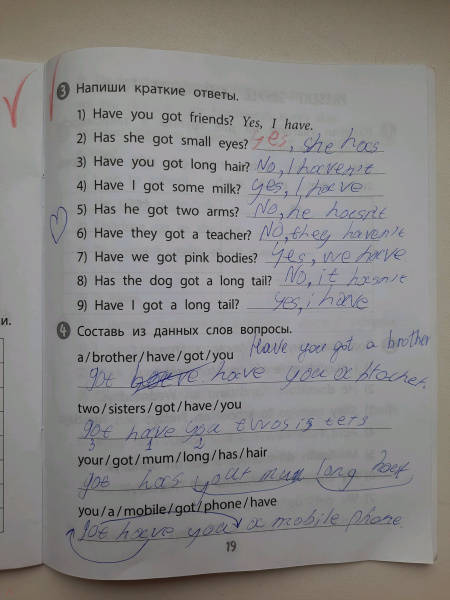 3 Напиши краткие ответы.
1) Have you got friends? Yes, I have.
2) Has she got small eyes? Yes, she has
3) Have you got long hair? No, I haven't
4) Have I got some milk? yes, I have
5) Has he got two arms? No, he hasn't
6) Have they got a teacher? No, they haven't
7) Have we got pink bodies? Yes, we have
8) Has the dog got a long tail? No, it hasn't
9) Have I got a long tail? Yes, i have
и.
4 Составь из данных слов вопросы.
a / brother / have / got / you Have you got a brother
got have you a brother.
two / sisters / got / have / you
got have you two sisters
3 1 2
your / got / mum / long / has / hair
got has your mum long
you / a / mobile / got / phone / have
got have you a mobile phone.
19